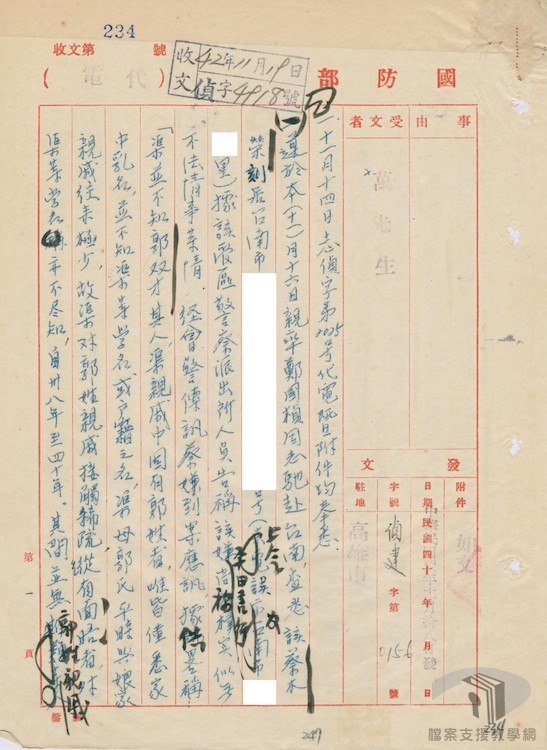 234
收文第 號
收文 42年11月19日
偵字4918號
國防部
(代電)
事由
受文者
萬先生
發文
附件
如文
日期
中華民國四十 年 月 日發
字號
偵建字第0156號
駐地
高雄市
一、十一月十四日志偵字第2025號代電暨附件均奉悉
二、謹於本(十一)月十六日親率鄭國楨同志馳赴台南,查悉該蔡木
榮刻居台南市 號(
里)據該管區警察派出所人員告稱該嫌尚 似無
不法情事等情 經會警傳訊蔡嫌到案應訊,據供畧稱
「渠並不知郭双才其人,渠親戚中固有郭姓者,唯皆僅悉家
中乳名,並不知渠等學名或戶籍之名,渠母郭氏平時與娘家
親戚往來極少,故渠對郭姓親戚接觸稀疏,縱有面晤者,林
渠等學名 亦不尽知,自卅八年至四十年。其間並無
郭姓親戚
第一頁
249
234
檔案支援教學網